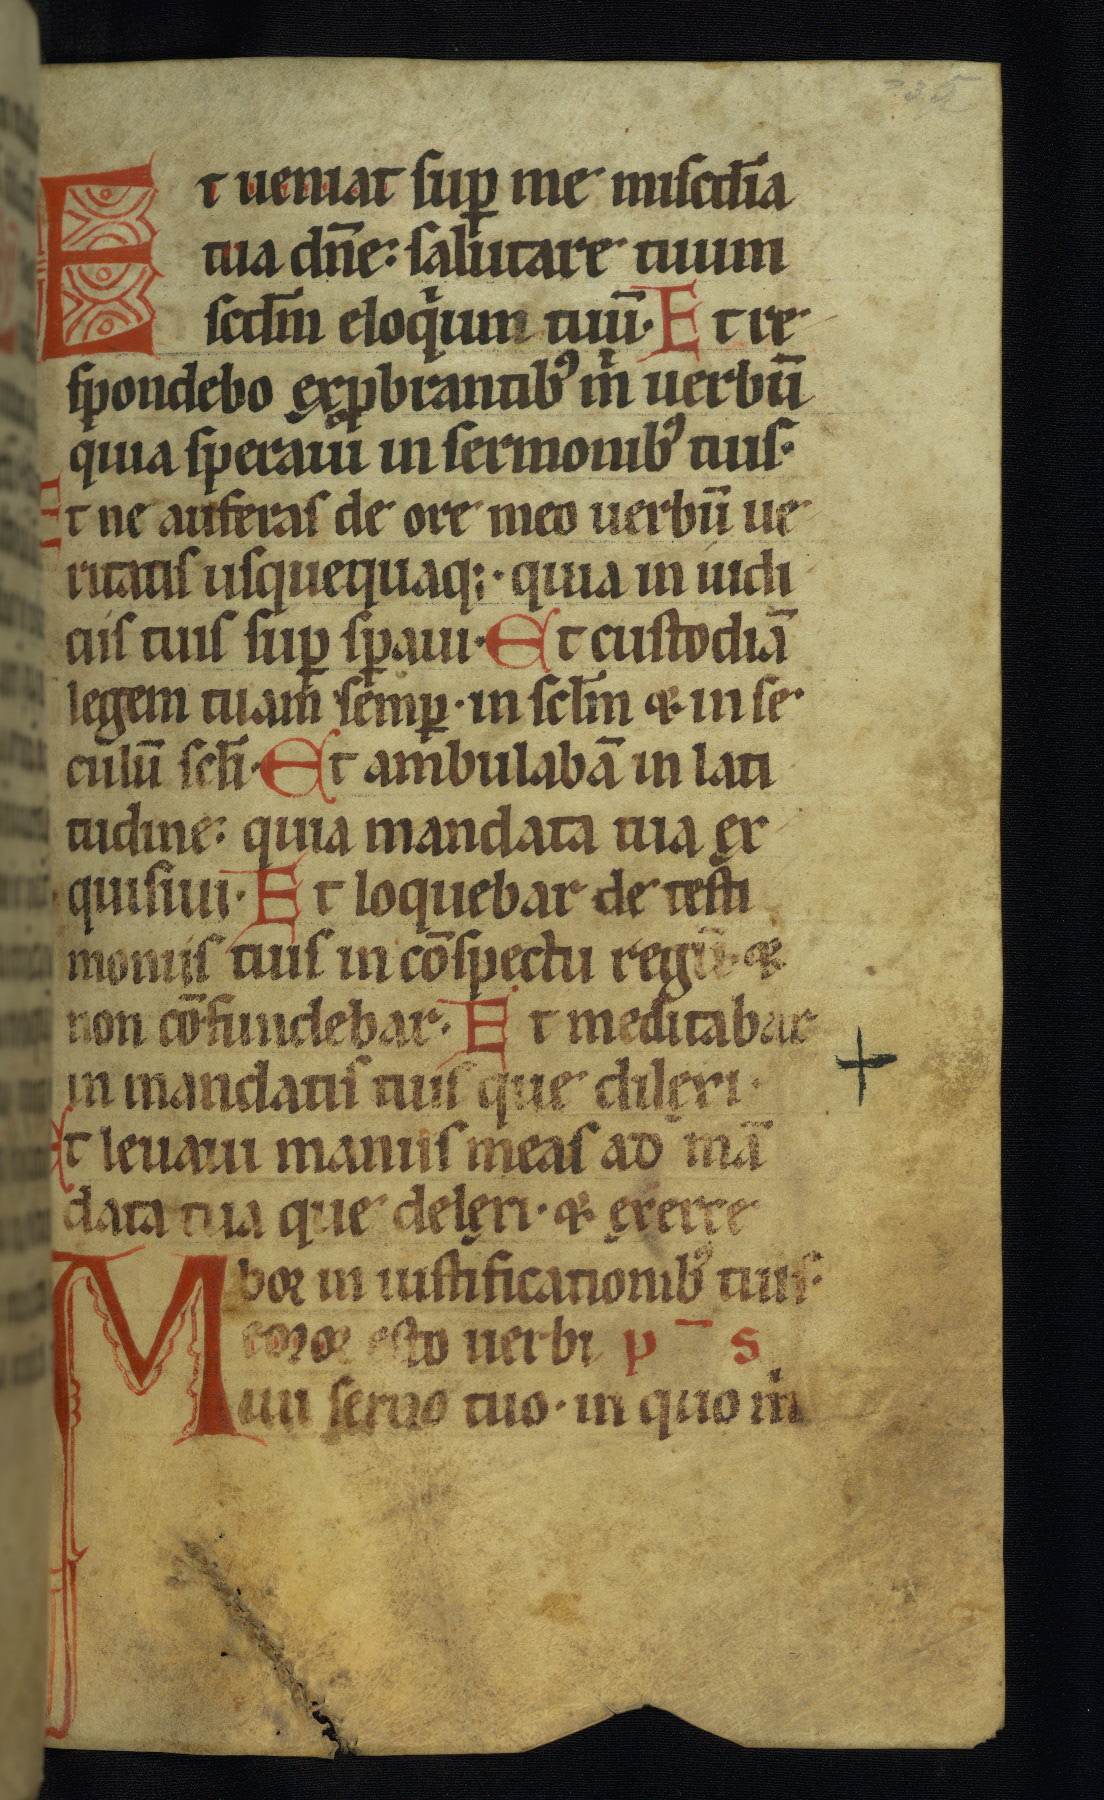 235
Et ueniat sup̱ me misc̄dia
tua dn̄e: salutare tuum
scd̄m eloqͥum tuū· Et re
spondebo exp̱brantib᷒ mͥ uerbū
quia speraui in sermonib᷒ tuis·
Et ne auferas de ore meo uerbū ue
ritatis usquequaq;· quia in iudi
ciis tuis sup̱ sp̱aui· Et custodiā
legem tuam semp̱· in scl̄m ⁊ in se
culū scl̄i· Et ambulabā in lati
tudine: quia mandata tua ex
quisiui· Et loquebar de testi
moniis tuis in cōspectu regū· ⁊
non cōfundebar· Et meditabar
in mandatis tuis que dilexi·
Et leuaui manus meas ad mā
data tua que delexi· ⁊ exerce
bor in iustificationib᷒ tuis·
Memor esto uerbi p̄ s
tui seruo tuo· in quo mͥ